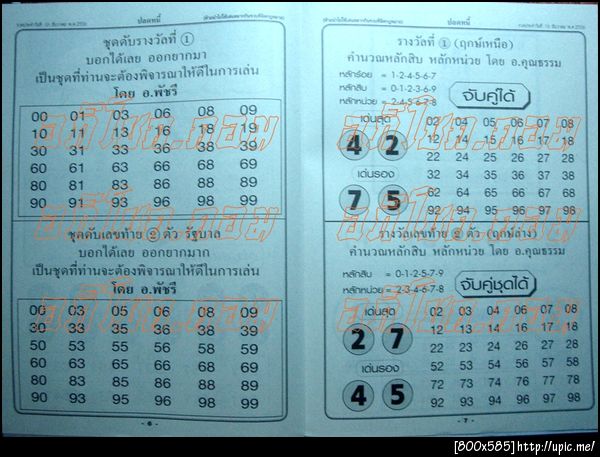 ปลดหนี้
ชุดดับรางวัลที่ ①
บอกได้เลย ออกยากมา
เป็นชุดที่ท่านจะต้องพิจารณาให้ดีในการเล่น
โดย อ.พัชรี
00 01 03 06 08 09
10 11 13 16 18 19
30 31 33 36 38 39
60 61 63 66 68 69
80 81 83 86 88 89
90 91 93 96 98 99
ชุดดับเลขท้าย ② ตัว รัฐบาล
บอกได้เลย ออกยากมาก
เป็นชุดที่ท่านจะต้องพิจารณาให้ดีในการเล่น
โดย อ.พัชรี
00 03 05 06 08 09
30 33 35 36 38 39
50 53 55 56 58 59
60 63 65 66 68 69
80 83 85 86 88 89
90 93 95 96 98 99
- 6 -
ปลดหนี้
รางวัลที่ ① (ฤกษ์เหนือ)
คำนวณหลักสิบ หลักหน่วย โดย อ.คุณธรรม
หลักร้อย = 1-2-4-5-6-7
หลักสิบ = 0-1-2-3-6-9
หลักหน่วย = 2-4-5-6-7-8
จับคู่ได้
เด่นสุด
4 2
เด่นรอง
7 5
02 04 05 06 07 08
12 14 15 16 17 18
22 24 25 26 27 28
32 34 35 36 37 38
62 64 65 66 67 68
92 94 95 96 97 98
รางวัลเลขท้าย ② ตัว (ฤกษ์ล่าง)
คำนวณหลักสิบ หลักหน่วย โดย อ.คุณธรรม
หลักสิบ = 0-1-2-5-7-9
หลักหน่วย = 2-3-4-6-7-8
จับคู่ชุดได้
เด่นสุด
2 7
เด่นรอง
4 5
02 03 04 06 07 08
12 13 14 16 17 18
22 23 24 26 27 28
52 53 54 56 57 58
72 73 74 76 77 78
92 93 94 96 97 98
- 7 -
[800x585]http://upic.me/